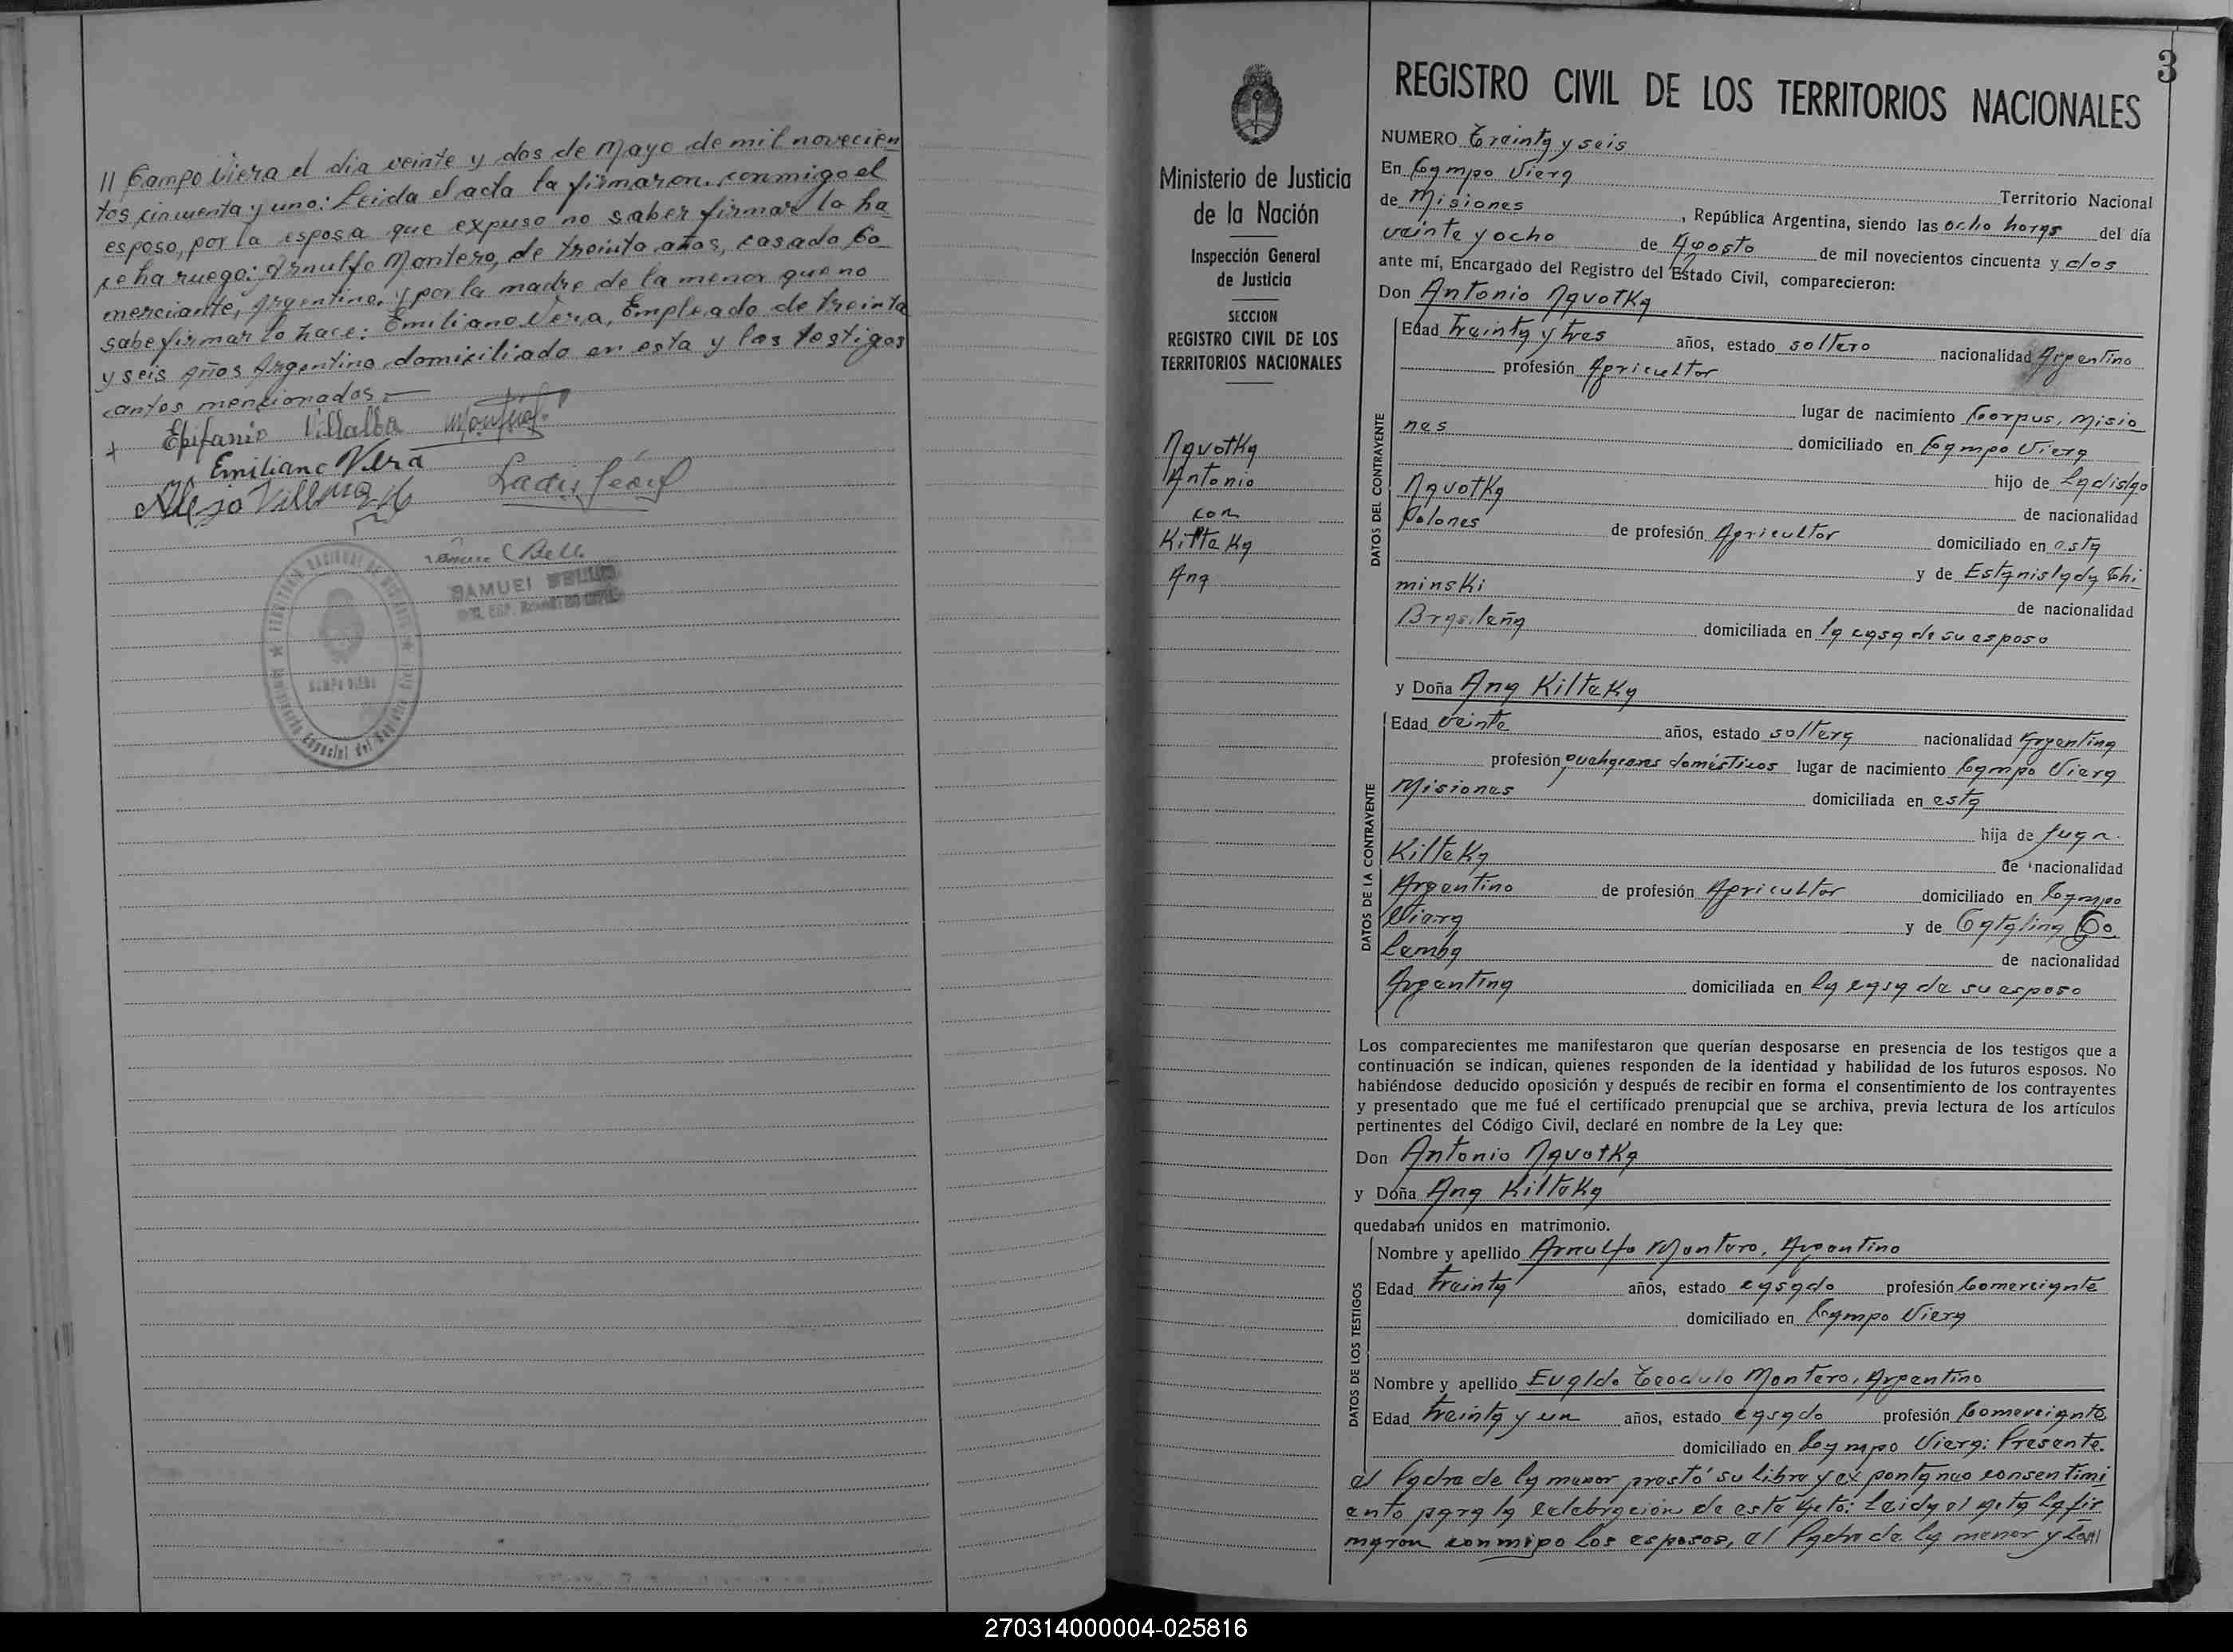 // Campo Viera el dia veinte y dos de Mayo de mil novecien
tos cincuenta y uno: Leida el acta la firmaron conmigo el
esposo, por la esposa que expuso no saber firmar lo ha
ce ha ruego: Arnulfo Montero, de treinta años, casado Co
merciante, Argentino. y por la madre de la menor que no
sabe firmar lo hace: Emiliano Vera, Empleado de treinta
y seis Años Argentino domiciliado en esta y los testigos
antes mencionados.-
Epifanio Villalba
Emiliano Vera
SAMUEL
CAMPO VIERA
3
REGISTRO CIVIL DE LOS TERRITORIOS NACIONALES
Ministerio de Justicia
de la Nación
Inspección General
de Justicia
SECCION
REGISTRO CIVIL DE LOS
TERRITORIOS NACIONALES
Navotka
Antonio
con
Kilteka
Ana
NUMERO Treinta y seis
En Campo Viera Territorio Nacional
de Misiones, República Argentina, siendo las ocho horas del día
veinte y ocho de Agosto de mil novecientos cincuenta y dos
ante mí, Encargado del Registro del Estado Civil, comparecieron:
Don Antonio Navotka
DATOS DEL CONTRAYENTE
Edad treinta y tres años, estado soltero nacionalidad Argentino
profesión Agricultor
lugar de nacimiento Corpus, Misio
nes domiciliado en Campo Viera
hijo de Ladislao
Navotka de nacionalidad
Polones de profesión Agricultor domiciliado en esta
y de Estanislada Chi
minski de nacionalidad
Brasileña domiciliada en la casa de su esposo
y Doña Ana Kilteka
DATOS DE LA CONTRAYENTE
Edad veinte años, estado soltera nacionalidad Argentina
profesión quehaceres domésticos lugar de nacimiento Campo Viera
Misiones domiciliada en esta
hija de Juan
Kilteka de nacionalidad
Argentino de profesión Agricultor domiciliado en Campo
Viera y de Catalina Go
lemba de nacionalidad
Argentina domiciliada en la casa de su esposo
Los comparecientes me manifestaron que querían desposarse en presencia de los testigos que a
continuación se indican, quienes responden de la identidad y habilidad de los futuros esposos. No
habiéndose deducido oposición y después de recibir en forma el consentimiento de los contrayentes
y presentado que me fué el certificado prenupcial que se archiva, previa lectura de los artículos
pertinentes del Código Civil, declaré en nombre de la Ley que:
Don Antonio Navotka
y Doña Ana Kilteka
quedaban unidos en matrimonio.
DATOS DE LOS TESTIGOS
Nombre y apellido Arnulfo Montero, Argentino
Edad treinta años, estado casado profesión Comerciante
domiciliado en Campo Viera
Nombre y apellido Eualdo Teodulo Montero, Argentino
Edad treinta y un años, estado casado profesión Comerciante
domiciliado en Campo Viera: Presente
el Padre de la menor prestó su libre y expontaneo consentimi
ento para la celebracion de este acto: Leida el acta la fir
maron conmigo los esposos, el Padre de la menor y los//
270314000004-025816